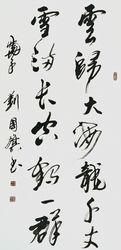 雲歸大海龍千丈
雪滿長空鶴一群
劉國書